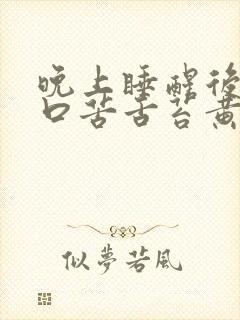 晚上睡醒后
口苦舌苔黄
似夢若風